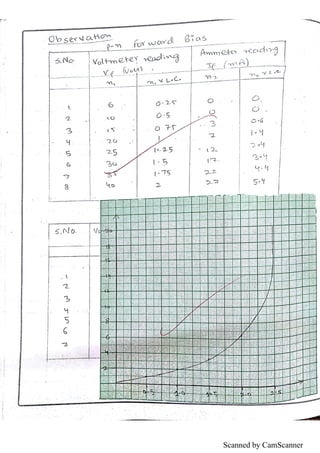 Observation
p-n forward Bias
S.No Voltmeter reading Ammeter reading
Vf (volt) If (mA)
n₁ n₁ x L.C. n₂ n₂ x L.C
1 6 0.25 0 0
2 10 0.5 0
3 15 0.75 3 0.6
4 20 1 7 1.4
5 25 1.25 12 2.4
6 30 1.5 17 3.4
7 35 1.75 22 4.4
8 40 2 27 5.4
S.No.
1
2
3
4
5
6
7
8
6
4
2
0.5 1.0 1.5 2.0 2.5
Scanned by CamScanner